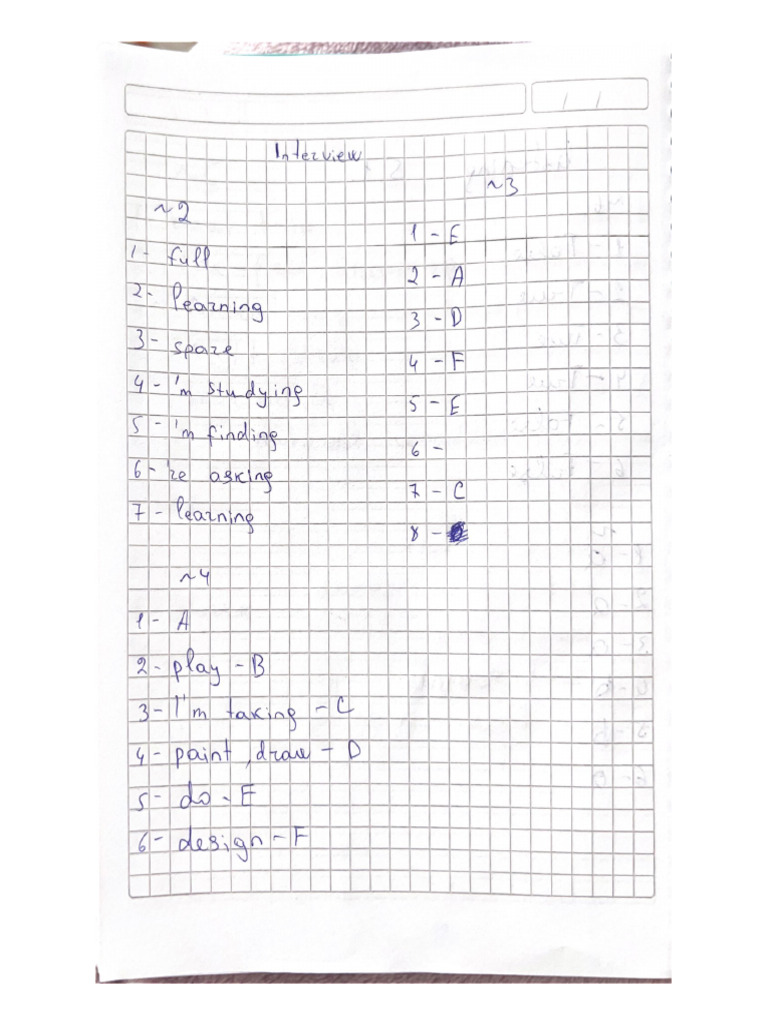 Interview
~2
1 - full
2 - learning
3 - spare
4 - 'm studying
5 - 'm finding
6 - 're asking
7 - learning
~3
1 - E
2 - A
3 - D
4 - F
5 - E
6 -
7 - C
8 -
~4
1 - A
2 - play - B
3 - I'm taking - C
4 - paint, draw - D
5 - do - E
6 - design - F